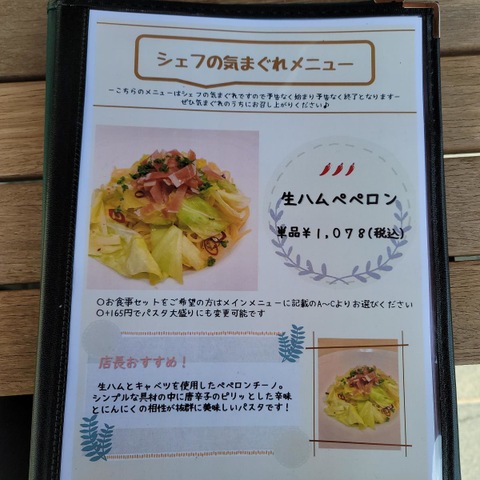 シェフの気まぐれメニュー
-こちらのメニューはシェフの気まぐれですので予告なく始まり予告なく終了となります-
ぜひ気まぐれのうちにお召し上がりください♪
生ハムペペロン
単品¥1,078(税込)
○お食事セットをご希望の方はメインメニューに記載のA~Cよりお選びください
○+165円でパスタ大盛りにも変更可能です
店長おすすめ!
生ハムとキャベツを使用したペペロンチーノ。
シンプルな具材の中に唐辛子のピリッとした辛味
とにんにくの相性が抜群に美味しいパスタです!